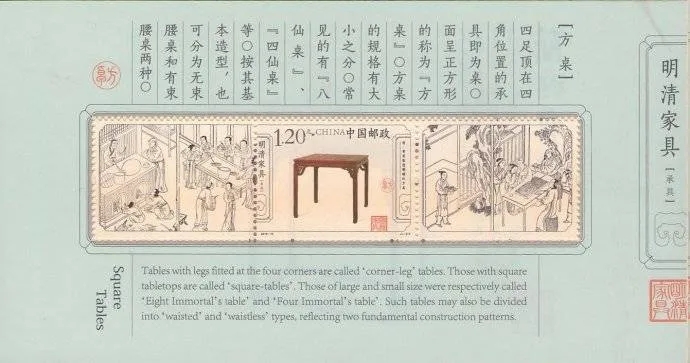 明清家具
[承具]
明清家具
[方桌]
四足顶在四
角位置的承
具即为桌〇
面呈正方形
的称为『方
桌』〇方桌
的规格有大
小之分〇常
见的有『八
仙桌』、
『四仙桌』
等〇按其基
本造型，也
可分为无束
腰桌和有束
腰桌两种〇
1.20
CHINA 中国邮政
明清家具
Square
Tables
Tables with legs fitted at the four corners are called 'corner-leg' tables. Those with square
tabletops are called 'square-tables'. Those of large and small size were respectively called
'Eight Immortal's table' and 'Four Immortal's table'. Such tables may also be divided
into 'waisted' and 'waistless' types, reflecting two fundamental construction patterns.